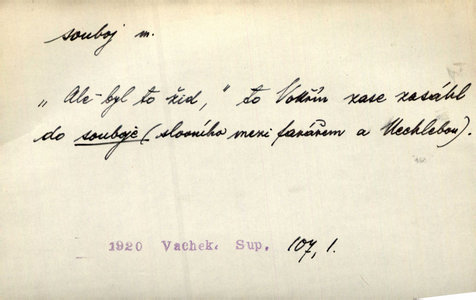 souboj m.
„Ale-byl to žid,“ to Vokřín zase zasáhl
do souboje (slovního mezi farářem a Nechlebou).
1920 Vachek. Sup. 107,1.